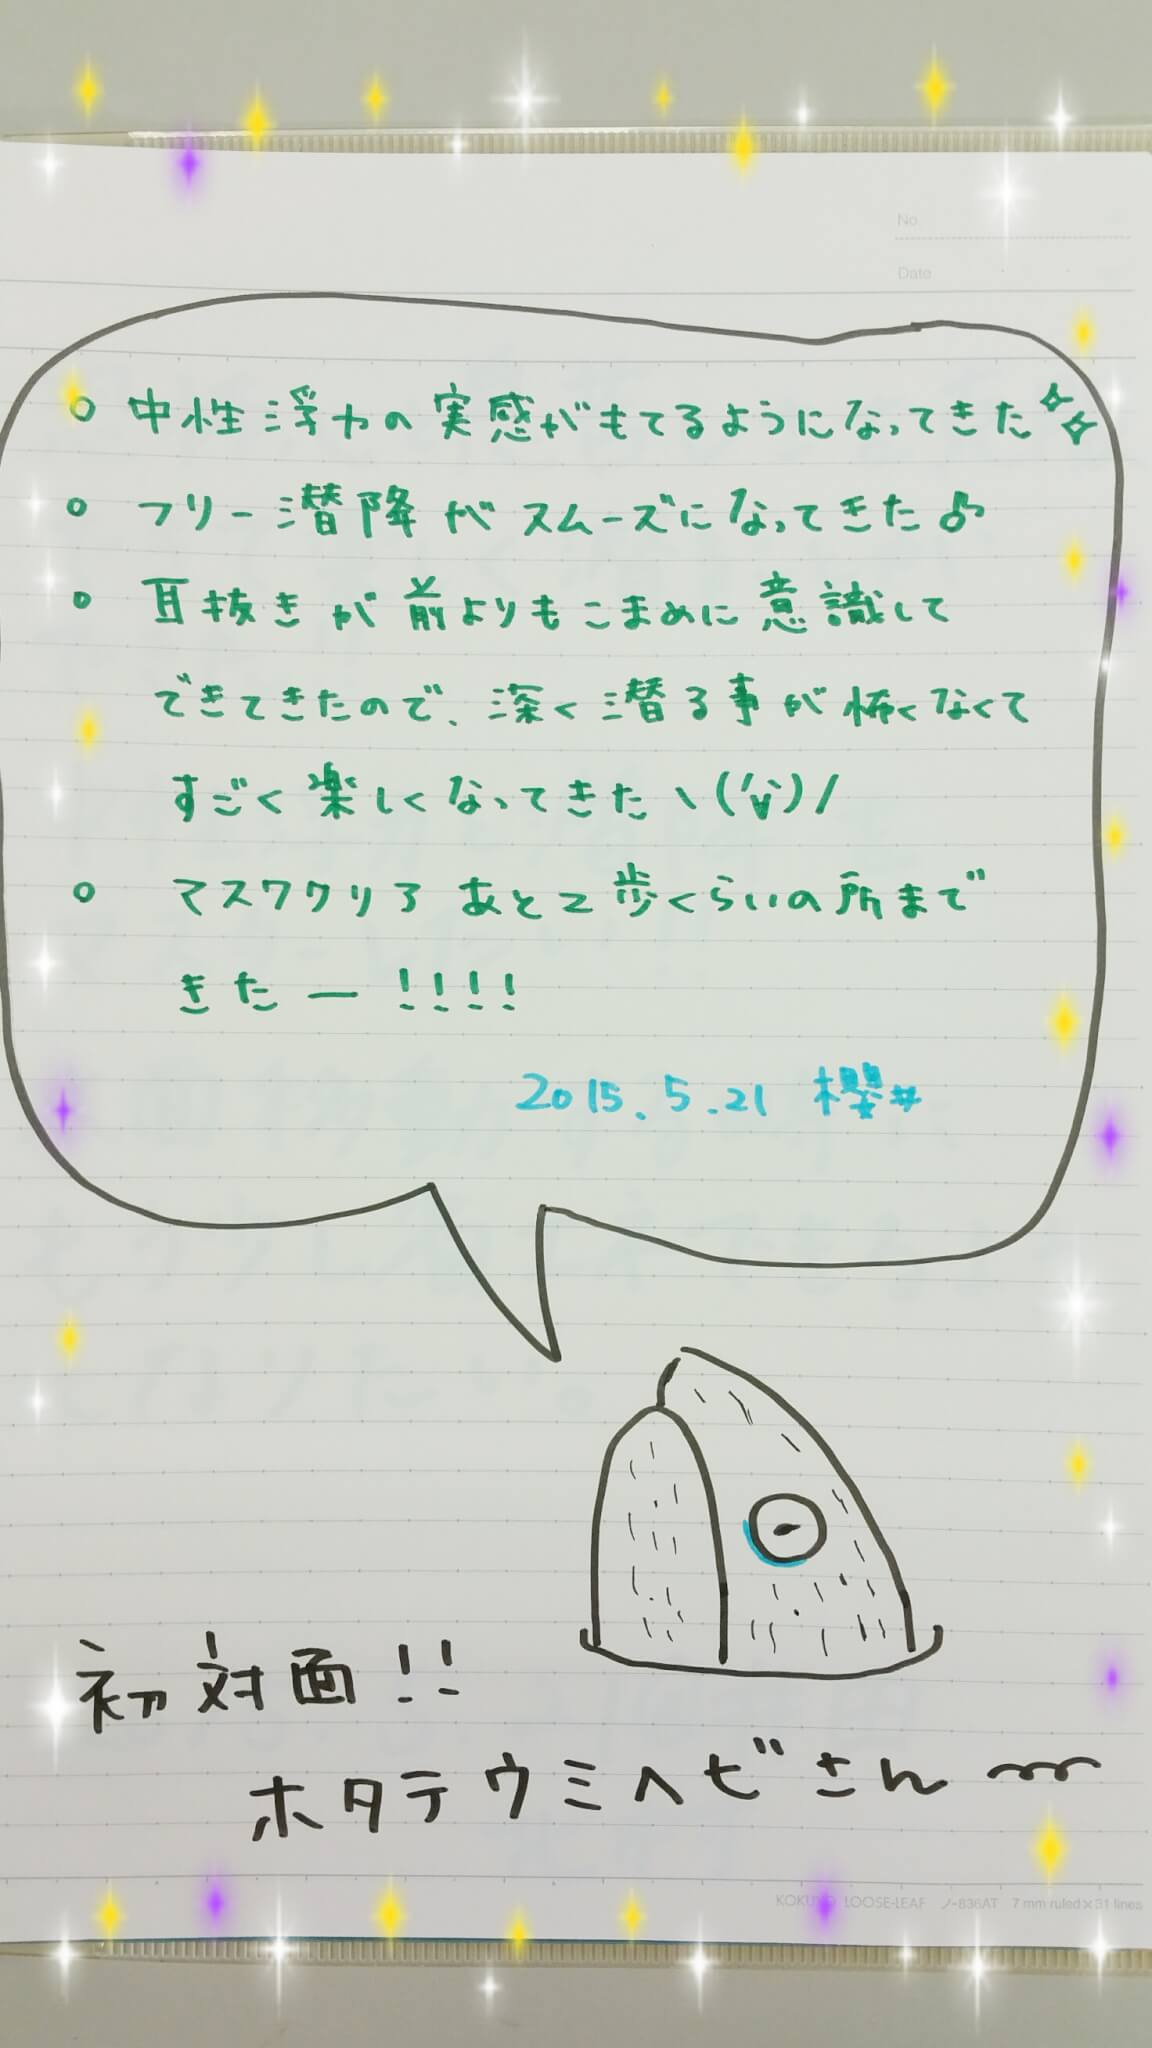 No
Date
○ 中性浮力の実感がもてるようになってきた✧✧
○ フリー潜降がスムーズになってきた♪
○ 耳抜きが前よりもこまめに意識して
できてきたので、深く潜る事が怖くなくて
すごく楽しくなってきた\(´∀`)/
○ マスククリアあと2歩くらいの所まで
きたー!!!!
2015.5.21 櫻井
初対面!!
ホタテウミヘビさん
KOKUYO LOOSE-LEAF ノ-836AT 7 mm ruled×31 lines